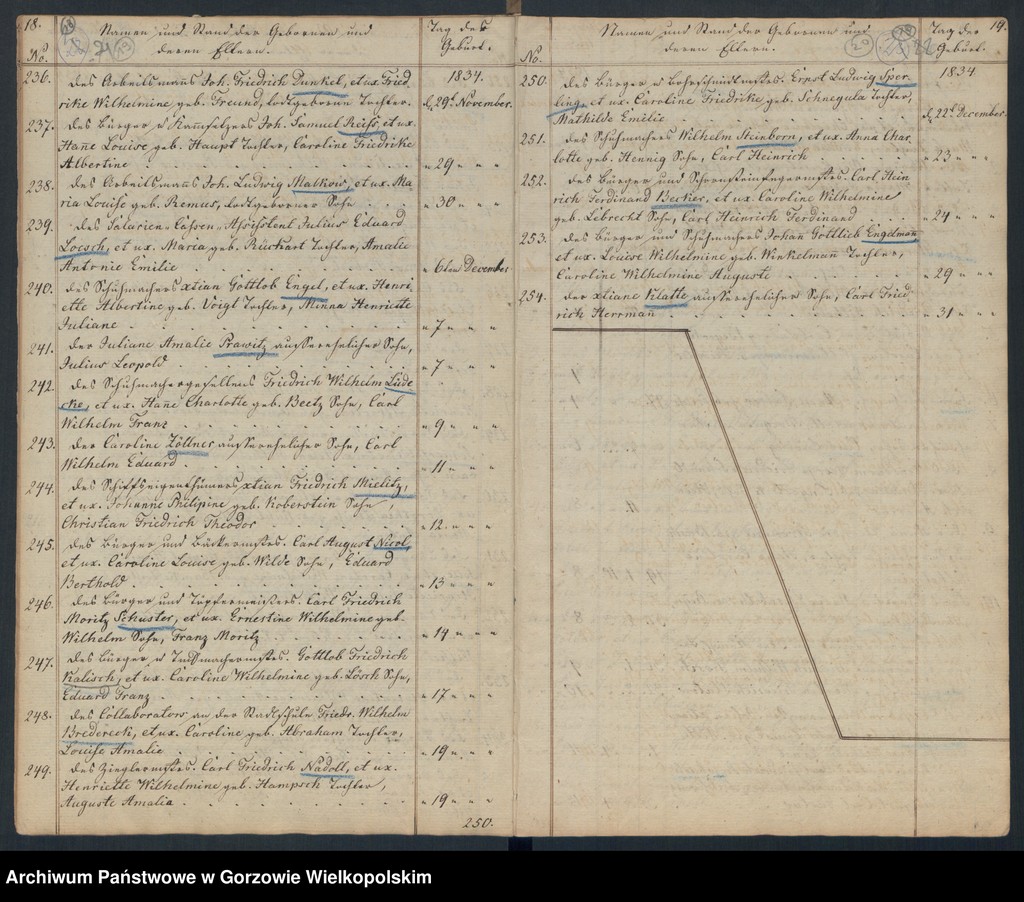 18.
No.
Namen und Stand der Gebornen und
deren Eltern.
Tag der
Geburt.
1834.
236. des Arbeitsmanns Joh. Friedrich Dunkel, et ux. Fried
rike Wilhelmine geb. Freund, todtgeborne Tochter.
d. 29t. November.
237. des Bürger u Kammsetzers Joh. Samuel Reiss, et ux.
Hane Louise geb. Haupt Tochter, Caroline Friedrike
Albertine
" 29 " " "
238. des Arbeitsmanns Joh. Ludwig Malkow, et ux. Ma
ria Louise geb. Remus, todtgeborner Sohn
" 30 " " "
239. des Salarien-Cassen-Assistent Julius Eduard
Loesch, et ux. Maria geb. Reichart Tochter, Amalie
Antonie Emilie
" 6ten December
240. des Schuhmachers xtian Gottlob Engel, et ux. Henri
ette Albertine geb. Voigt Tochter, Minna Henriette
Juliane
" 7 " " "
241. der Juliane Amalie Prawitz ausserehelicher Sohn,
Julius Leopold
" 7 " " "
242. des Schuhmachergesellens Friedrich Wilhelm Lüde
cke, et ux. Hane Charlotte geb. Beetz Sohn, Carl
Wilhelm Franz
" 9 " " "
243. der Caroline Zöllner ausserehelicher Sohn, Carl
Wilhelm Eduard
" 11 " " "
244. des Schiffseigenthümers xtian Friedrich Mielitz,
et ux. Johanne Philipine geb. Koberstein Sohn,
Christian Friedrich Theodor
" 12 " " "
245. des Bürger und Bäckermstrs. Carl August Nicol,
et ux. Caroline Louise geb. Wilde Sohn, Eduard
Berthold
" 13 " " "
246. des Bürger und Töpfermeisters. Carl Friedrich
Moritz Schuster, et ux. Ernestine Wilhelmine geb.
Wilhelm Sohn, Franz Moritz
" 14 " " "
247. des Bürger u Tuchmachermstrs. Gottlob Friedrich
Kalisch, et ux. Caroline Wilhelmine geb. Lösch Sohn,
Eduard Franz
" 17 " " "
248. des Collaborators an der Stadtschule Friedr. Wilhelm
Bredereck, et ux. Caroline geb. Abraham Tochter,
Louise Amalie
" 19 " " "
249. des Zieglermstrs. Carl Friedrich Nadoll, et ux.
Henriette Wilhelmine geb. Hampsch Tochter,
Auguste Amalia
" 19 " " "
250.
19.
No.
Namen und Stand der Gebornen und
deren Eltern.
Tag der
Geburt.
1834.
250. des Bürger u Ernst Ludwig Sper
ling, et ux. Caroline Friedrike geb. Schnegula Tochter,
Mathilde Emilie
d. 22t. December.
251. des Schuhmachers Wilhelm Steinborn, et ux. Anna Char
lotte geb. Hennig Sohn, Carl Heinrich
" 23 " " "
252. des Bürger und Schornsteinfegermstrs. Carl Hein
rich Ferdinand Becker, et ux. Caroline Wilhelmine
geb. Lebrecht Sohn, Carl Heinrich Ferdinand
" 24 " " "
253. des Bürger und Schuhmachers Johan Gottlieb Engelman
et ux. Louise Wilhelmine geb. Winkelman Tochter,
Caroline Wilhelmine Auguste
" 29 " " "
254. der xtiane Klatte ausserehelicher Sohn, Carl Fried
rich Herrman
" 31 " " "
Archiwum Państwowe w Gorzowie Wielkopolskim